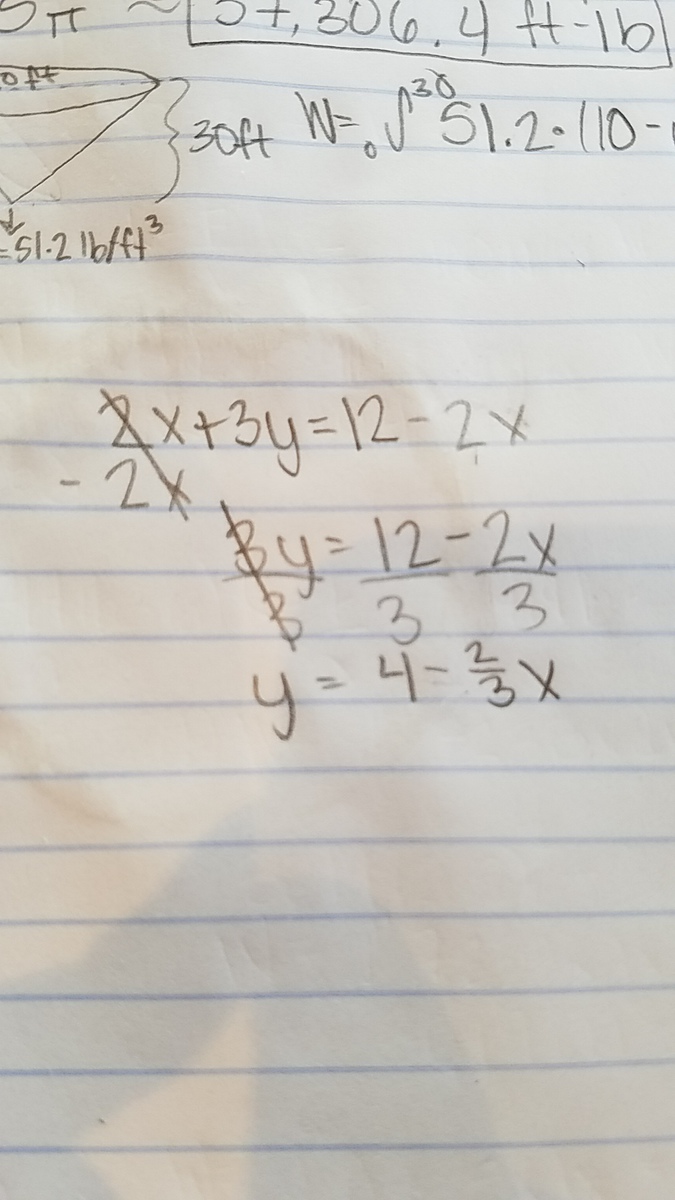 π ~ 306.4 ft-lb
0ft
30ft W= ₀∫³⁰ 51.2·(10-
=51.2 lb/ft³
2x+3y=12-2x
-2x
3y = 12 - 2x
3 3 3
y = 4 - 2/3 x